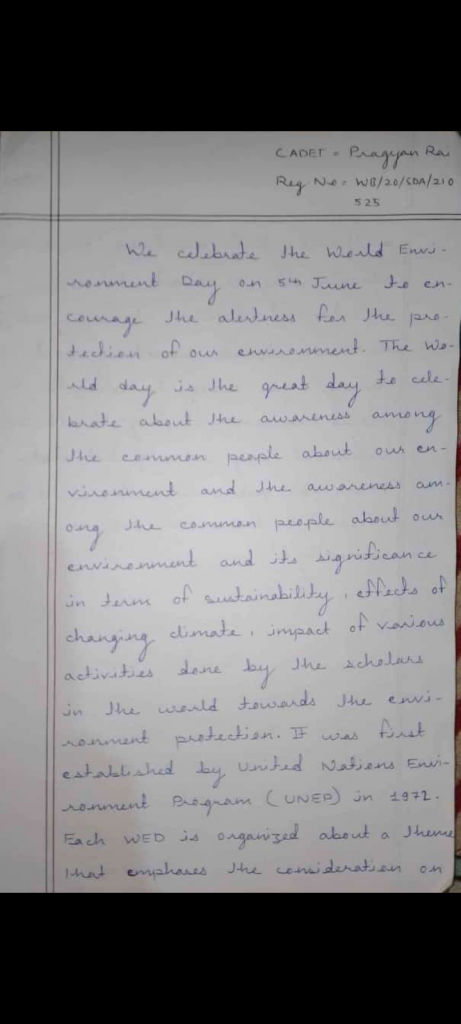 CADET = Pragyan Rai
Reg. No = WB/20/SDA/210
525
We celebrate the World Envi-
ronment Day on 5th June to en-
courage the alertness for the pro-
tection of our environment. The Wo-
rld day is the great day to cele-
brate about the awareness among
the common people about our en-
vironment and the awareness am-
ong the common people about our
environment and its significance
in term of sustainability, effects of
changing climate, impact of various
activities done by the scholars
in the world towards the envi-
ronment protection. It was first
established by United Nations Envi-
ronment Program (UNEP) in 1972.
Each WED is organized about a theme
that emphases the consideration on